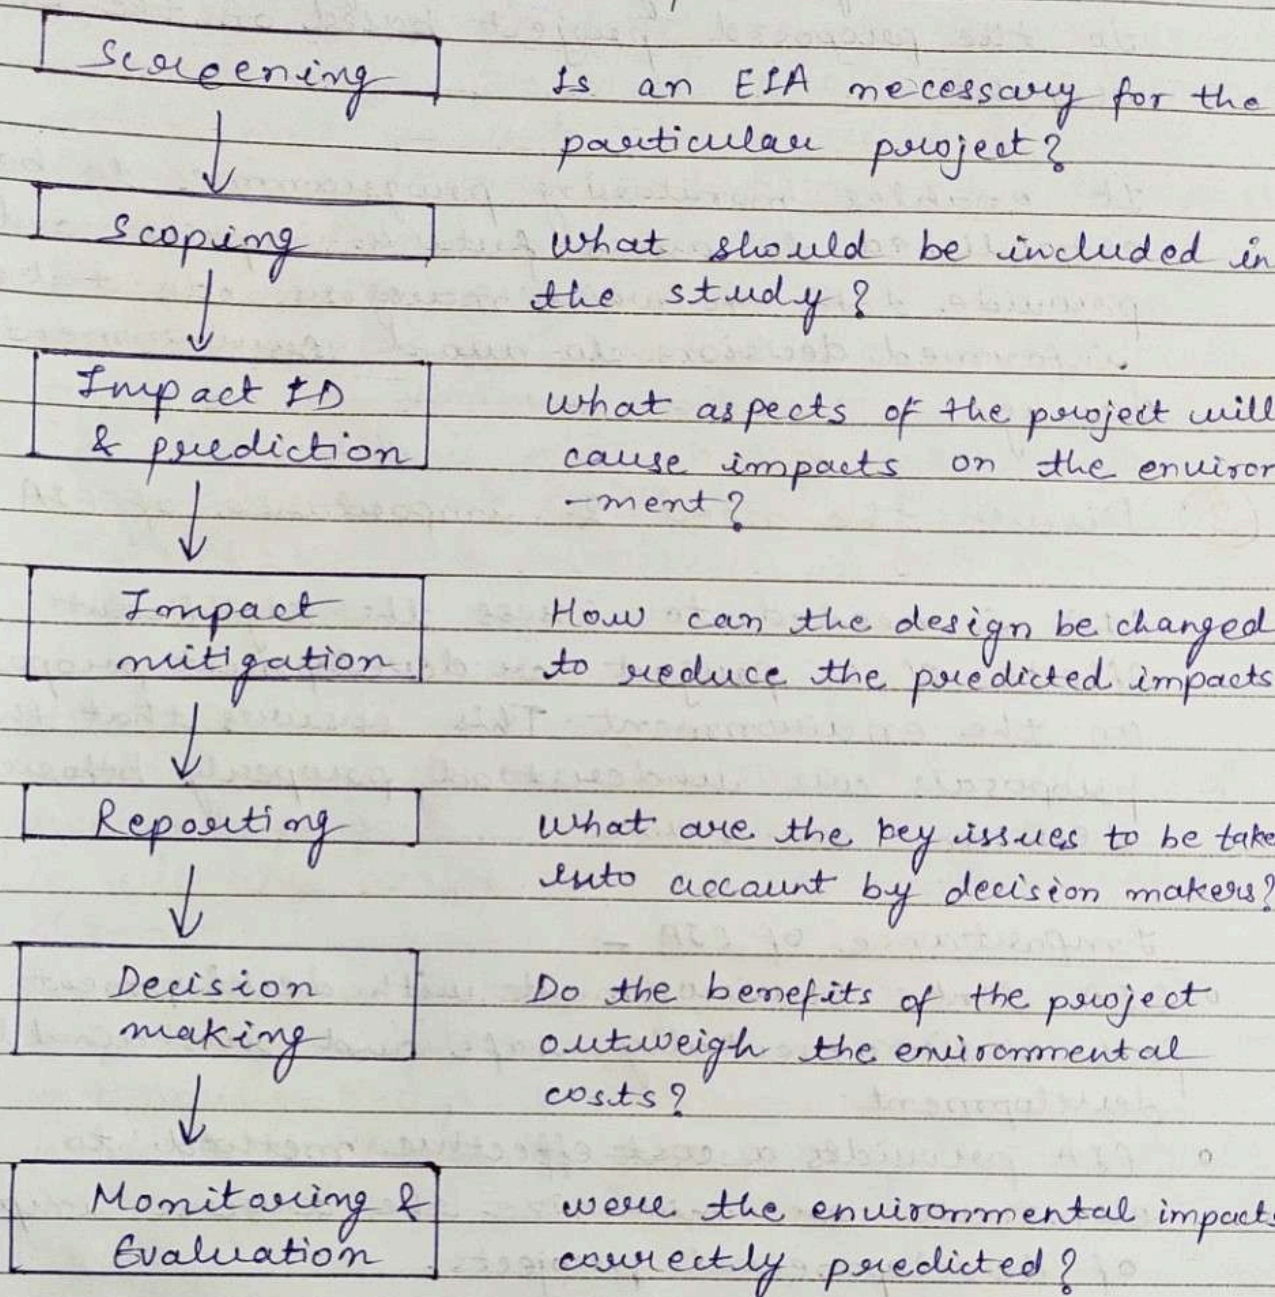 Screening
Is an EIA necessary for the
particular project?
Scoping
What should be included in
the study?
Impact ID
& prediction
What aspects of the project will
cause impacts on the environ
-ment?
Impact
mitigation
How can the design be changed
to reduce the predicted impacts
Reporting
What are the key issues to be take
into account by decision makers?
Decision
making
Do the benefits of the project
outweigh the environmental
costs?
Monitoring &
Evaluation
were the environmental impacts
correctly predicted?